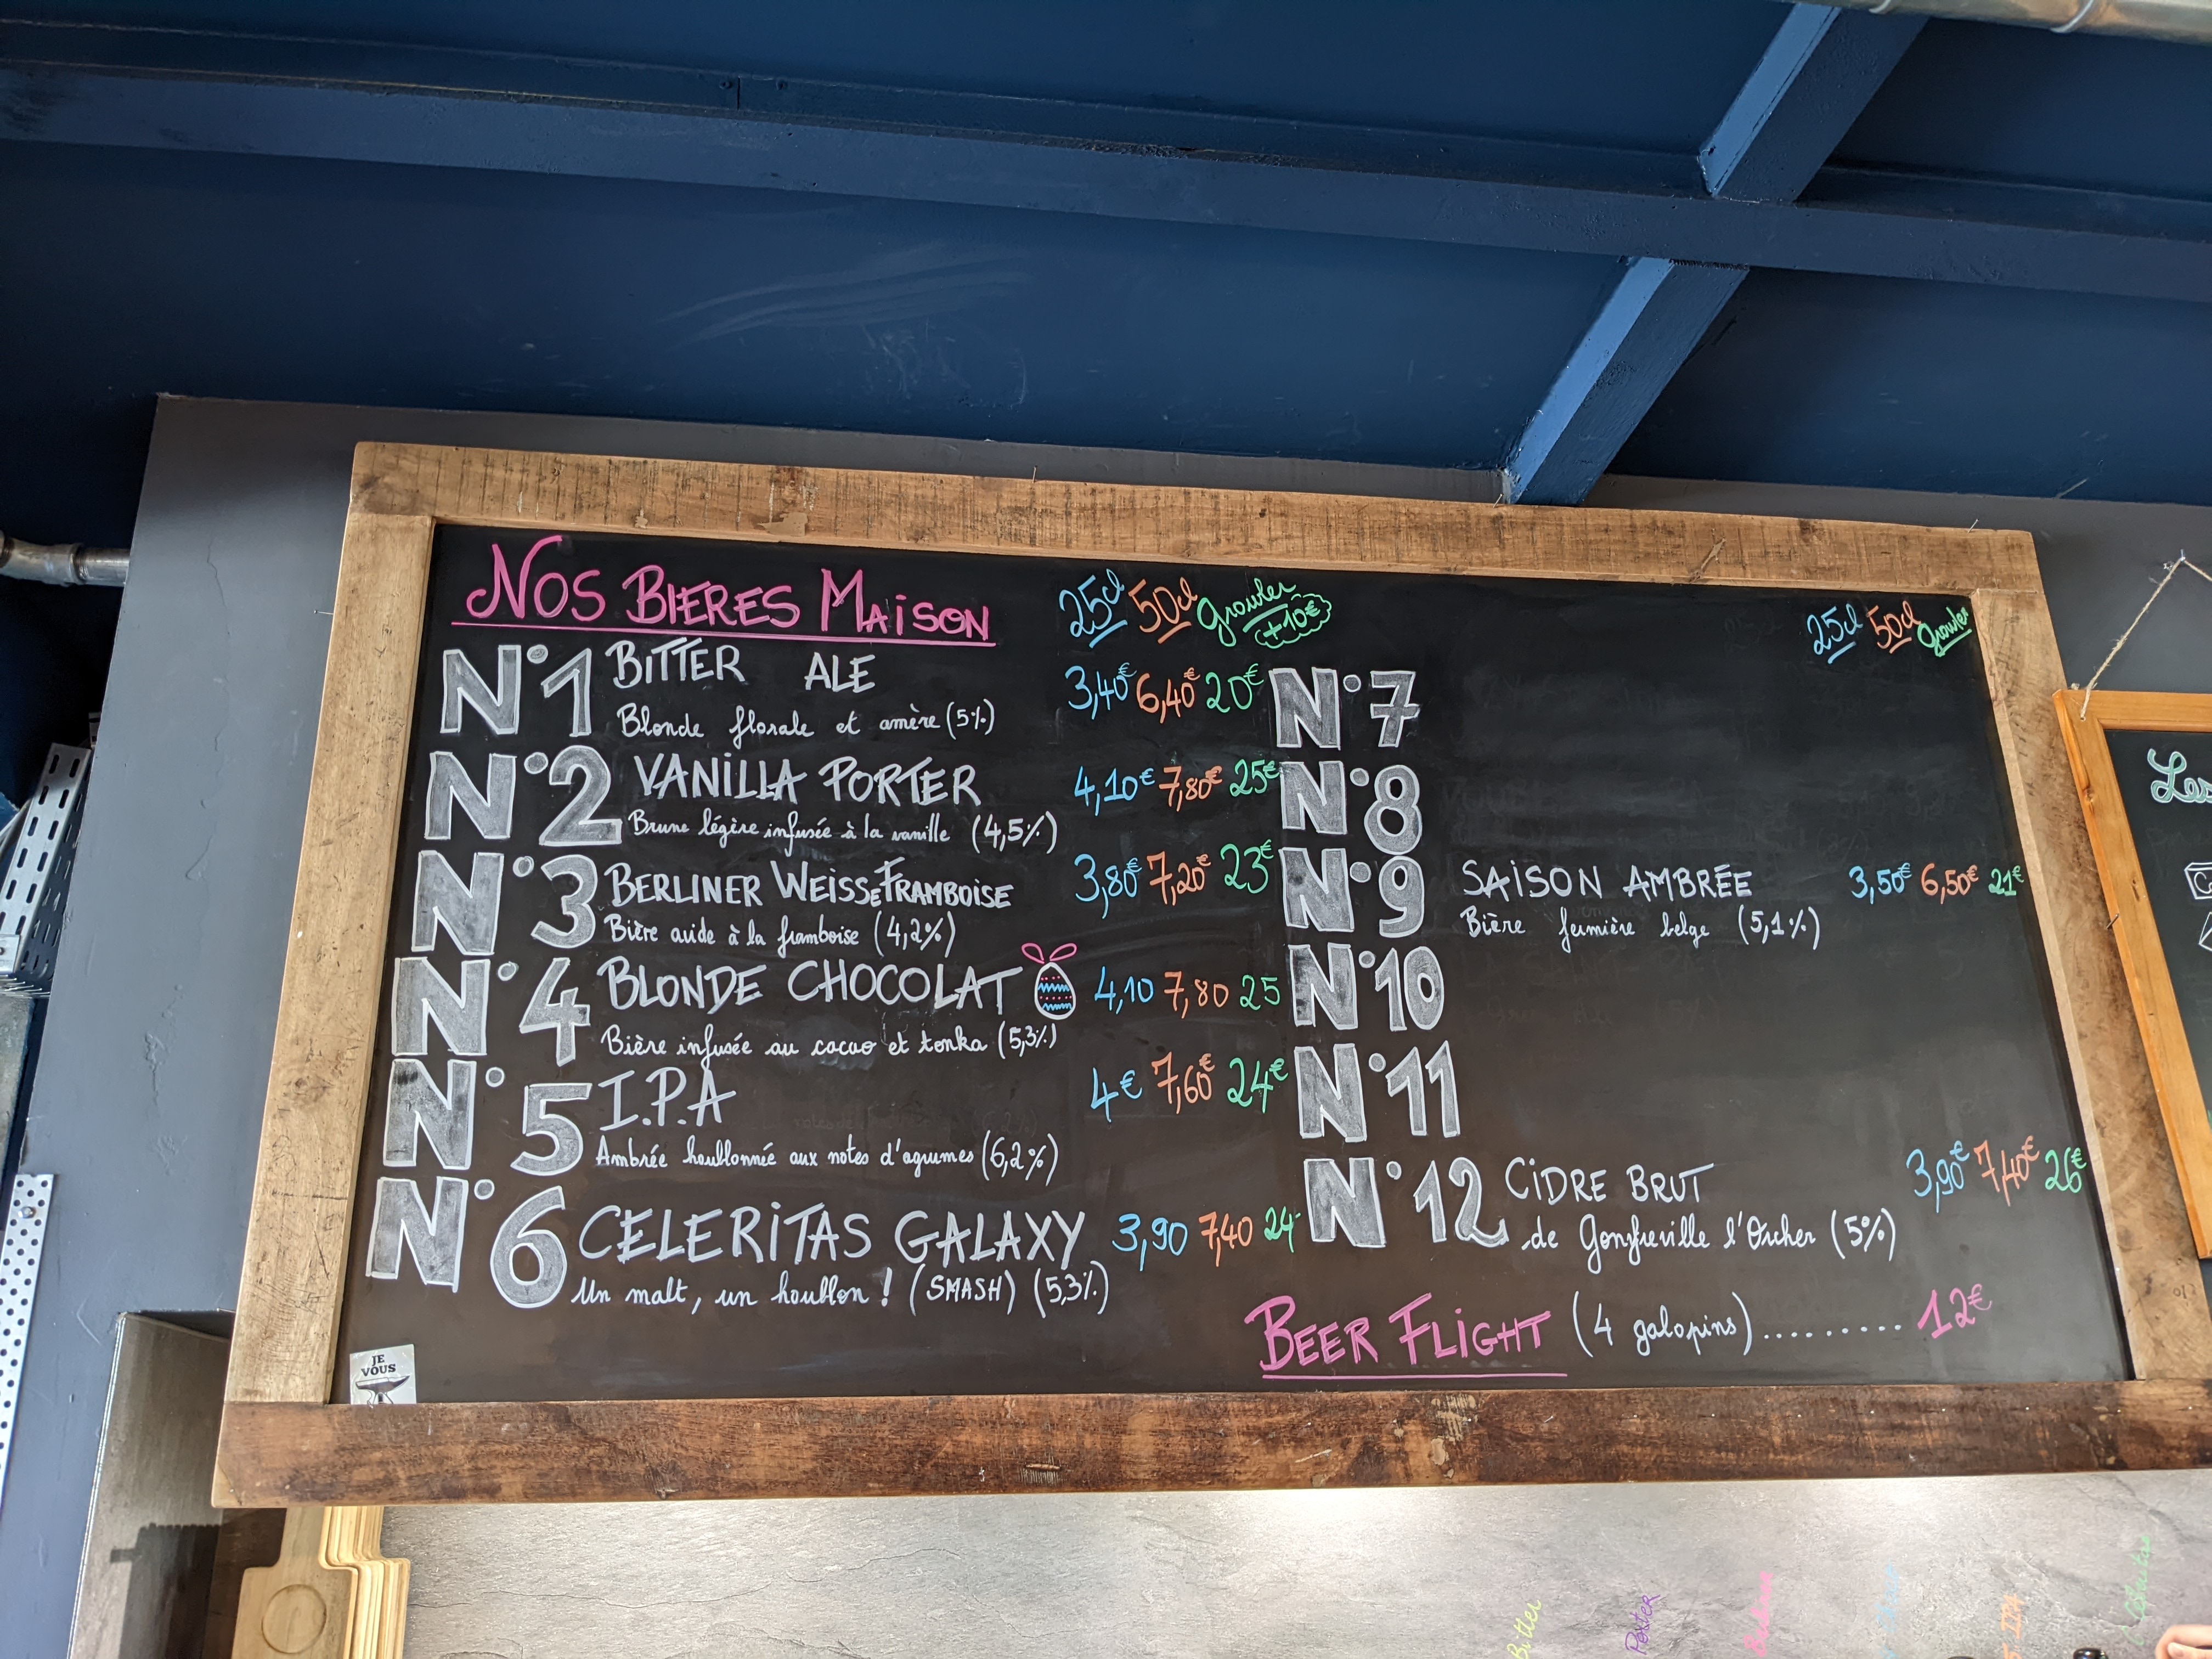 NOS BIERES MAISON 25cl 50cl growler (+10€)
N°1 BITTER ALE 3,40€ 6,40€ 20€
Blonde florale et amère (5%)
N°2 VANILLA PORTER 4,10€ 7,80€ 25€
Brune légère infusée à la vanille (4,5%)
N°3 BERLINER WEISSE FRAMBOISE 3,80€ 7,20€ 23€
Bière acide à la framboise (4,2%)
N°4 BLONDE CHOCOLAT 4,10 7,80 25
Bière infusée au cacao et tonka (5,3%)
N°5 I.P.A 4€ 7,60€ 24€
Ambrée houblonnée aux notes d'agrumes (6,2%)
N°6 CELERITAS GALAXY 3,90 7,40 24
Un malt, un houblon ! (SMASH) (5,3%)
JE
VOUS
25cl 50cl growler
N°7
N°8
N°9 SAISON AMBRÉE 3,50€ 6,50€ 21€
Bière fermière belge (5,1%)
N°10
N°11
N°12 CIDRE BRUT 3,90€ 7,40€ 26€
de Gonfreville l'Orcher (5%)
BEER FLIGHT (4 galopins)......... 12€
Les
Bitter
Porter
IPA